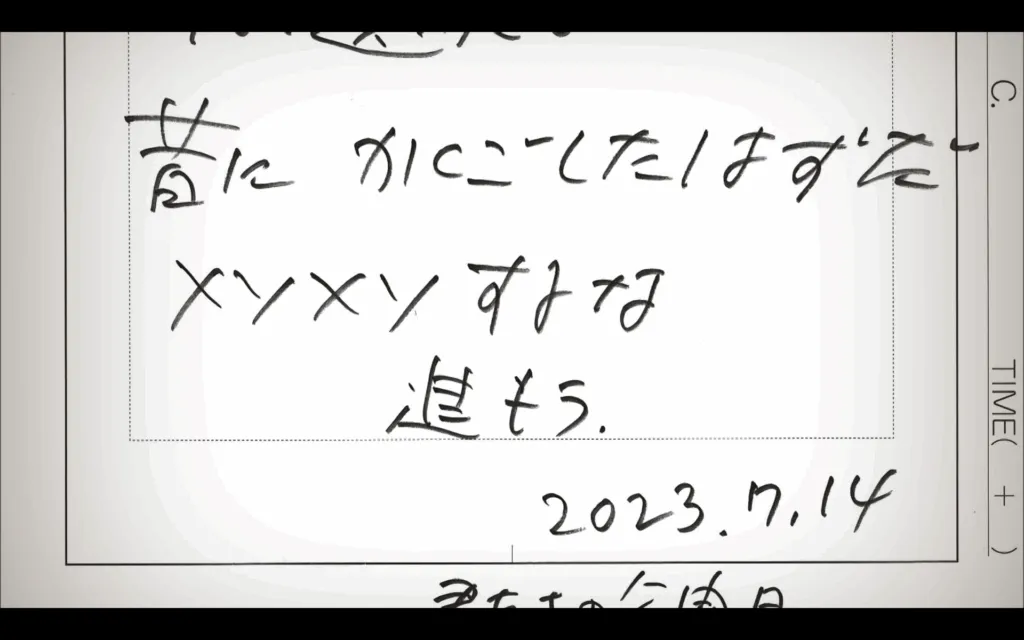 昔に かくごしたはずだ
メソメソするな
進もう.
2023.7.14
C.
TIME( + )